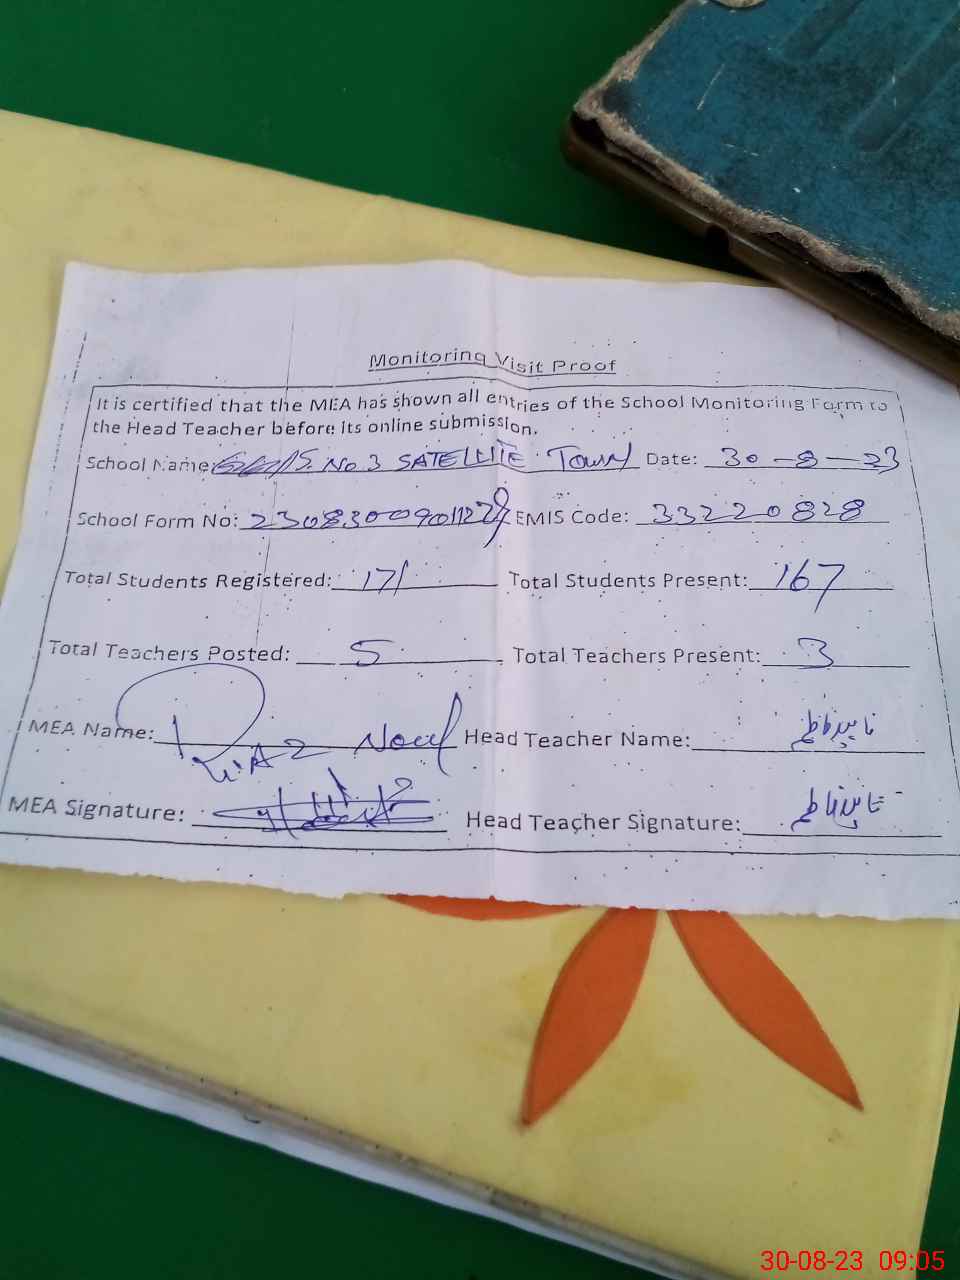 Monitoring Visit Proof
It is certified that the MEA has shown all entries of the School Monitoring Form to
the Head Teacher before its online submission.
School Name: No.3 SATELLITE Town Date: 30-8-23
School Form No: EMIS Code: 33220828
Total Students Registered: 171 Total Students Present: 167
Total Teachers Posted: 5 Total Teachers Present: 3
MEA Name: Head Teacher Name:
MEA Signature: Head Teacher Signature:
30-08-23 09:05